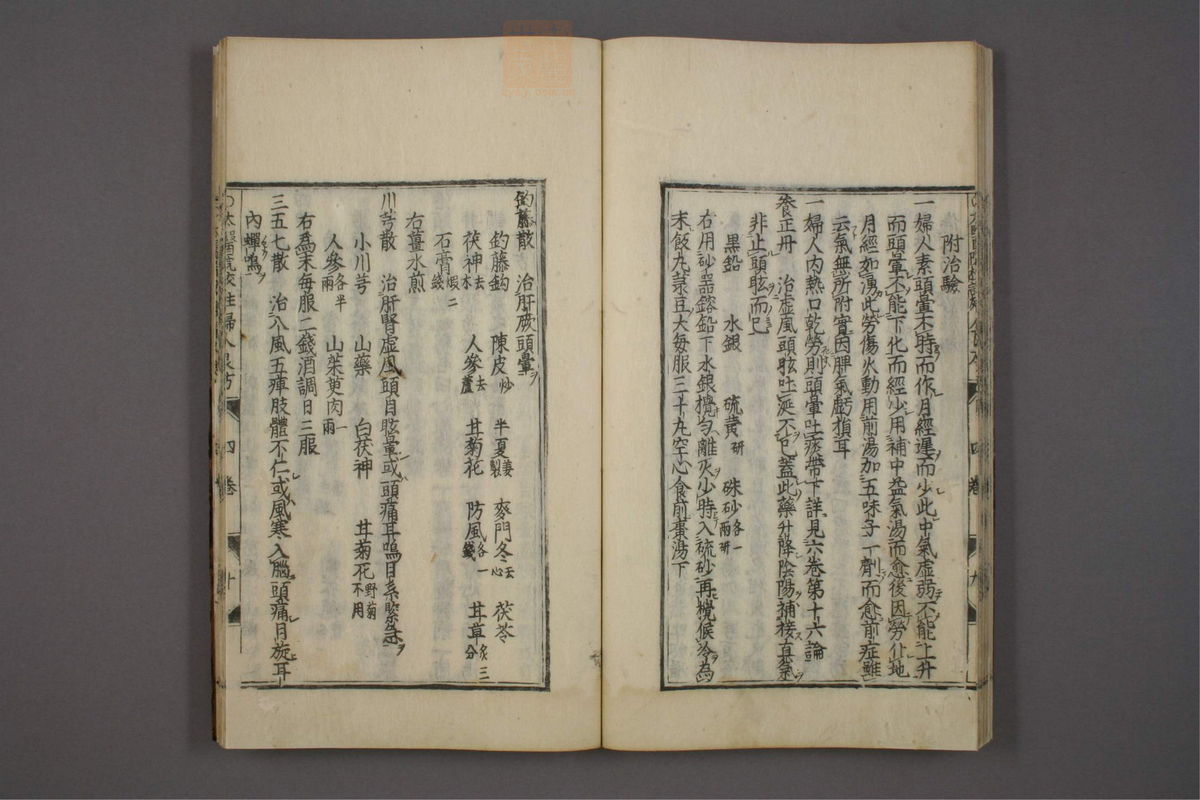 附治驗
一婦人素頭暈不時而作月經遲而少此中氣虛弱不能上升
而頭暈不能下化而經少用補中益氣湯而愈後因勞仆地
月經如湧此勞傷火動用前湯加五味子一劑而愈前症雖
云氣無所附實因脾氣虧損耳
一婦人內熱口乾勞則頭暈吐痰帶下詳見六卷第十六論
養正丹 治虛風頭眩吐涎不已蓋此藥升降陰陽補接真氣
非止頭眩而已
黑鉛 水銀 硫黄研 硃砂各一兩研
右用砂器鎔鉛下水銀攪勻離火少時入硫砂再攪候冷為
末飯丸菉豆大每服三十丸空心食前棗湯下
四卷 九
鈎藤散 治肝厥頭暈
鈎藤鈎 陳皮炒 半夏薑製 麥門冬去心 茯苓
茯神去木 人參去蘆 甘菊花 防風各一錢 甘草炙三分
石膏煆二錢
右薑水煎
川芎散 治肝腎虛風頭目眩暈或頭痛耳鳴目系緊急
小川芎 山藥 白茯神 甘菊花野菊不用
人參各半兩 山茱萸肉一兩
右為末每服二錢酒調日三服
三五七散 治八風五痺肢體不仁或風寒入腦頭痛目旋耳
內蟬鳴
太醫院校註婦人良方 四卷 十